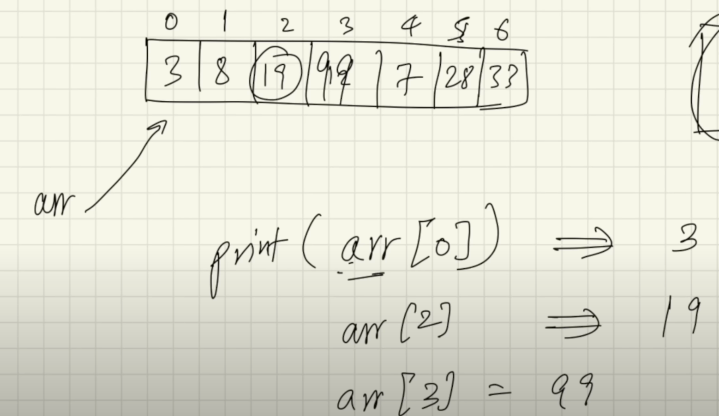 0 1 2 3 4 5 6
3 8 19 99 7 28 33
arr
print(arr[0]) ⇒ 3
arr[2] ⇒ 19
arr[3] = 99